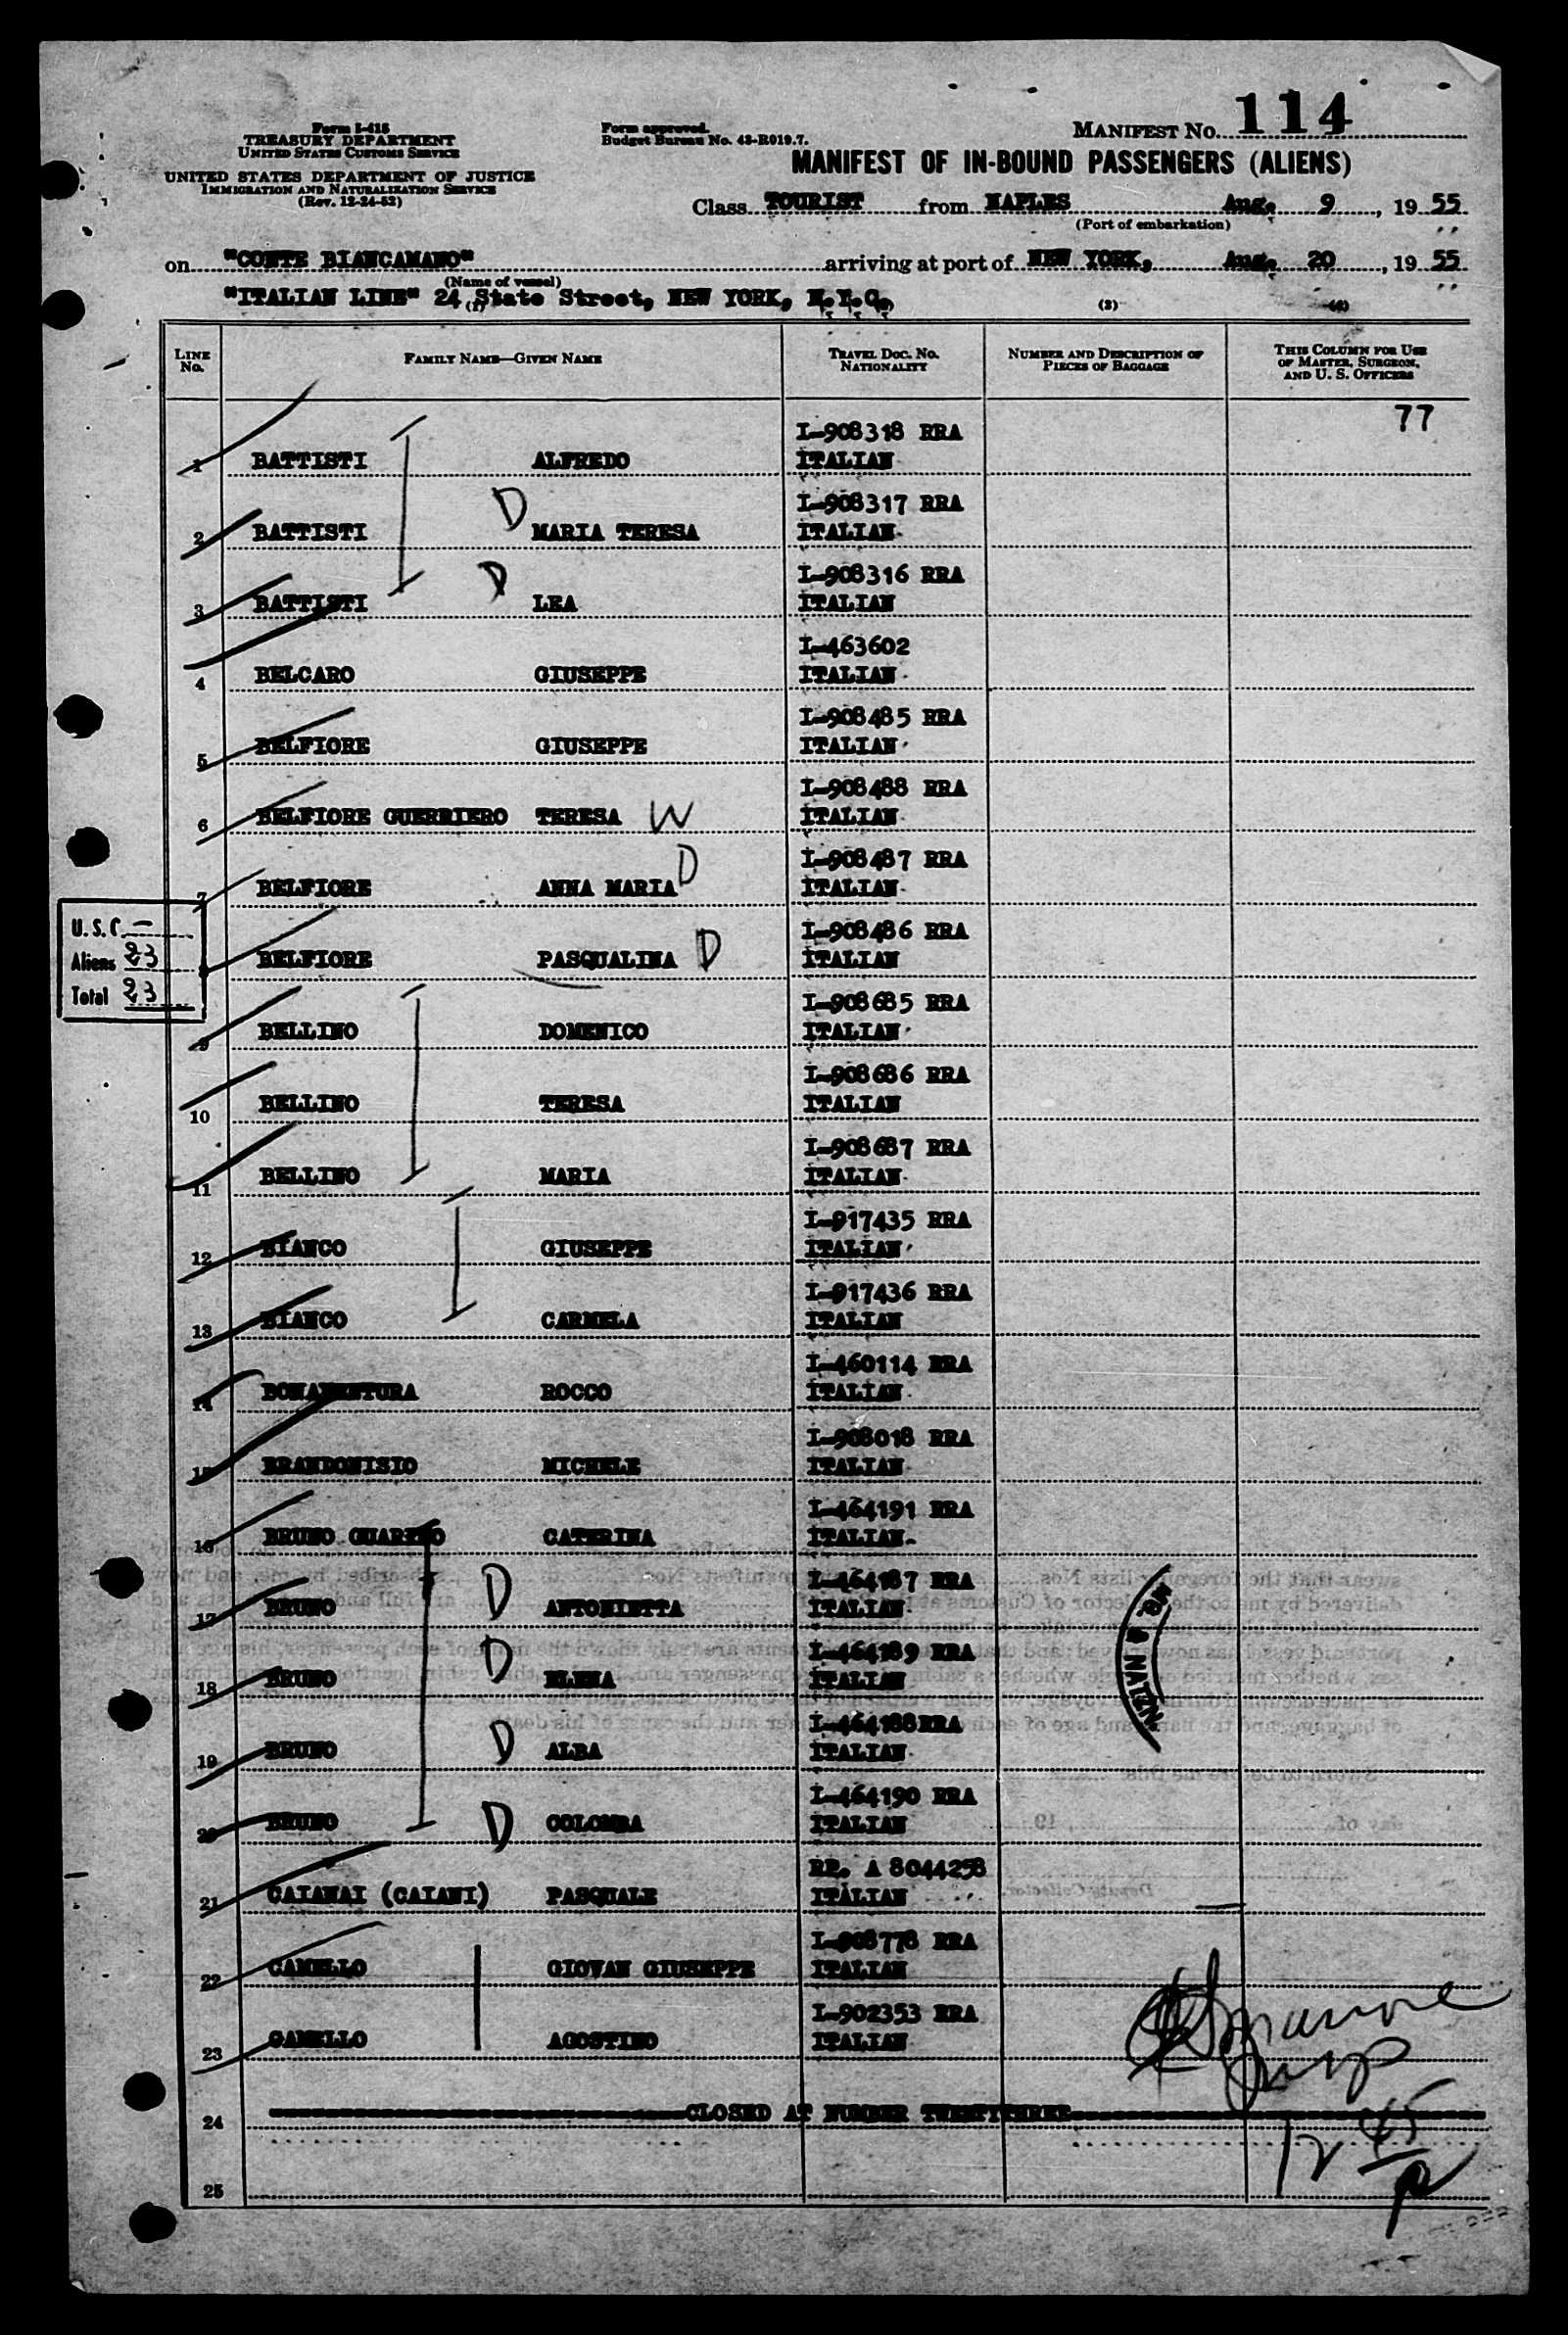 Form I-418
TREASURY DEPARTMENT
UNITED STATES CUSTOMS SERVICE
UNITED STATES DEPARTMENT OF JUSTICE
IMMIGRATION AND NATURALIZATION SERVICE
(Rev. 12-24-52)
Form approved.
Budget Bureau No. 43-R019.7.
MANIFEST No. 114
MANIFEST OF IN-BOUND PASSENGERS (ALIENS)
Class TOURIST from NAPLES Aug. 9, 1955
(Port of embarkation)
on "CONTE BIANCAMANO" arriving at port of NEW YORK, Aug. 20, 1955
(Name of vessel)
"ITALIAN LINE" 24 State Street, NEW YORK, N.Y.C.
(1) (3) (4)
LINE No. FAMILY NAME—GIVEN NAME TRAVEL DOC. No. NATIONALITY NUMBER AND DESCRIPTION OF PIECES OF BAGGAGE THIS COLUMN FOR USE OF MASTER, SURGEON, AND U. S. OFFICERS
77
I-908318 RRA
1 BATTISTI ALFREDO ITALIAN
I-908317 RRA
2 BATTISTI D MARIA TERESA ITALIAN
I-908316 RRA
3 BATTISTI D LEA ITALIAN
I-463602
4 BELCARO GIUSEPPE ITALIAN
I-908485 RRA
5 BELFIORE GIUSEPPE ITALIAN
I-908488 RRA
6 BELFIORE GUERRIERO TERESA W ITALIAN
I-908487 RRA
7 BELFIORE ANNA MARIA D ITALIAN
I-908486 RRA
8 BELFIORE PASQUALINA D ITALIAN
U.S.C. —
Aliens 23
Total 23
I-908685 RRA
9 BELLINO DOMENICO ITALIAN
I-908686 RRA
10 BELLINO TERESA ITALIAN
I-908687 RRA
11 BELLINO MARIA ITALIAN
I-917435 RRA
12 BIANCO GIUSEPPE ITALIAN
I-917436 RRA
13 BIANCO CARMELA ITALIAN
I-460114 RRA
14 BONAVENTURA ROCCO ITALIAN
I-908018 RRA
15 BRANDONISIO MICHELE ITALIAN
I-464191 RRA
16 BRUNO GUARINO CATERINA ITALIAN
I-464187 RRA
17 BRUNO D ANTONIETTA ITALIAN
I-464189 RRA
18 BRUNO D ELENA ITALIAN
I-464188 RRA
19 BRUNO D ALBA ITALIAN
I-464190 RRA
20 BRUNO D COLOMBA ITALIAN
& NATZN
RP. A 8044258
21 CAIANAI (CAIANI) PASQUALE ITALIAN
I-908778 RRA
22 CAMELLO GIOVAN GIUSEPPE ITALIAN
I-902353 RRA
23 CAMELLO AGOSTINO ITALIAN
24 CLOSED AT NUMBER TWENTYTHREE
25